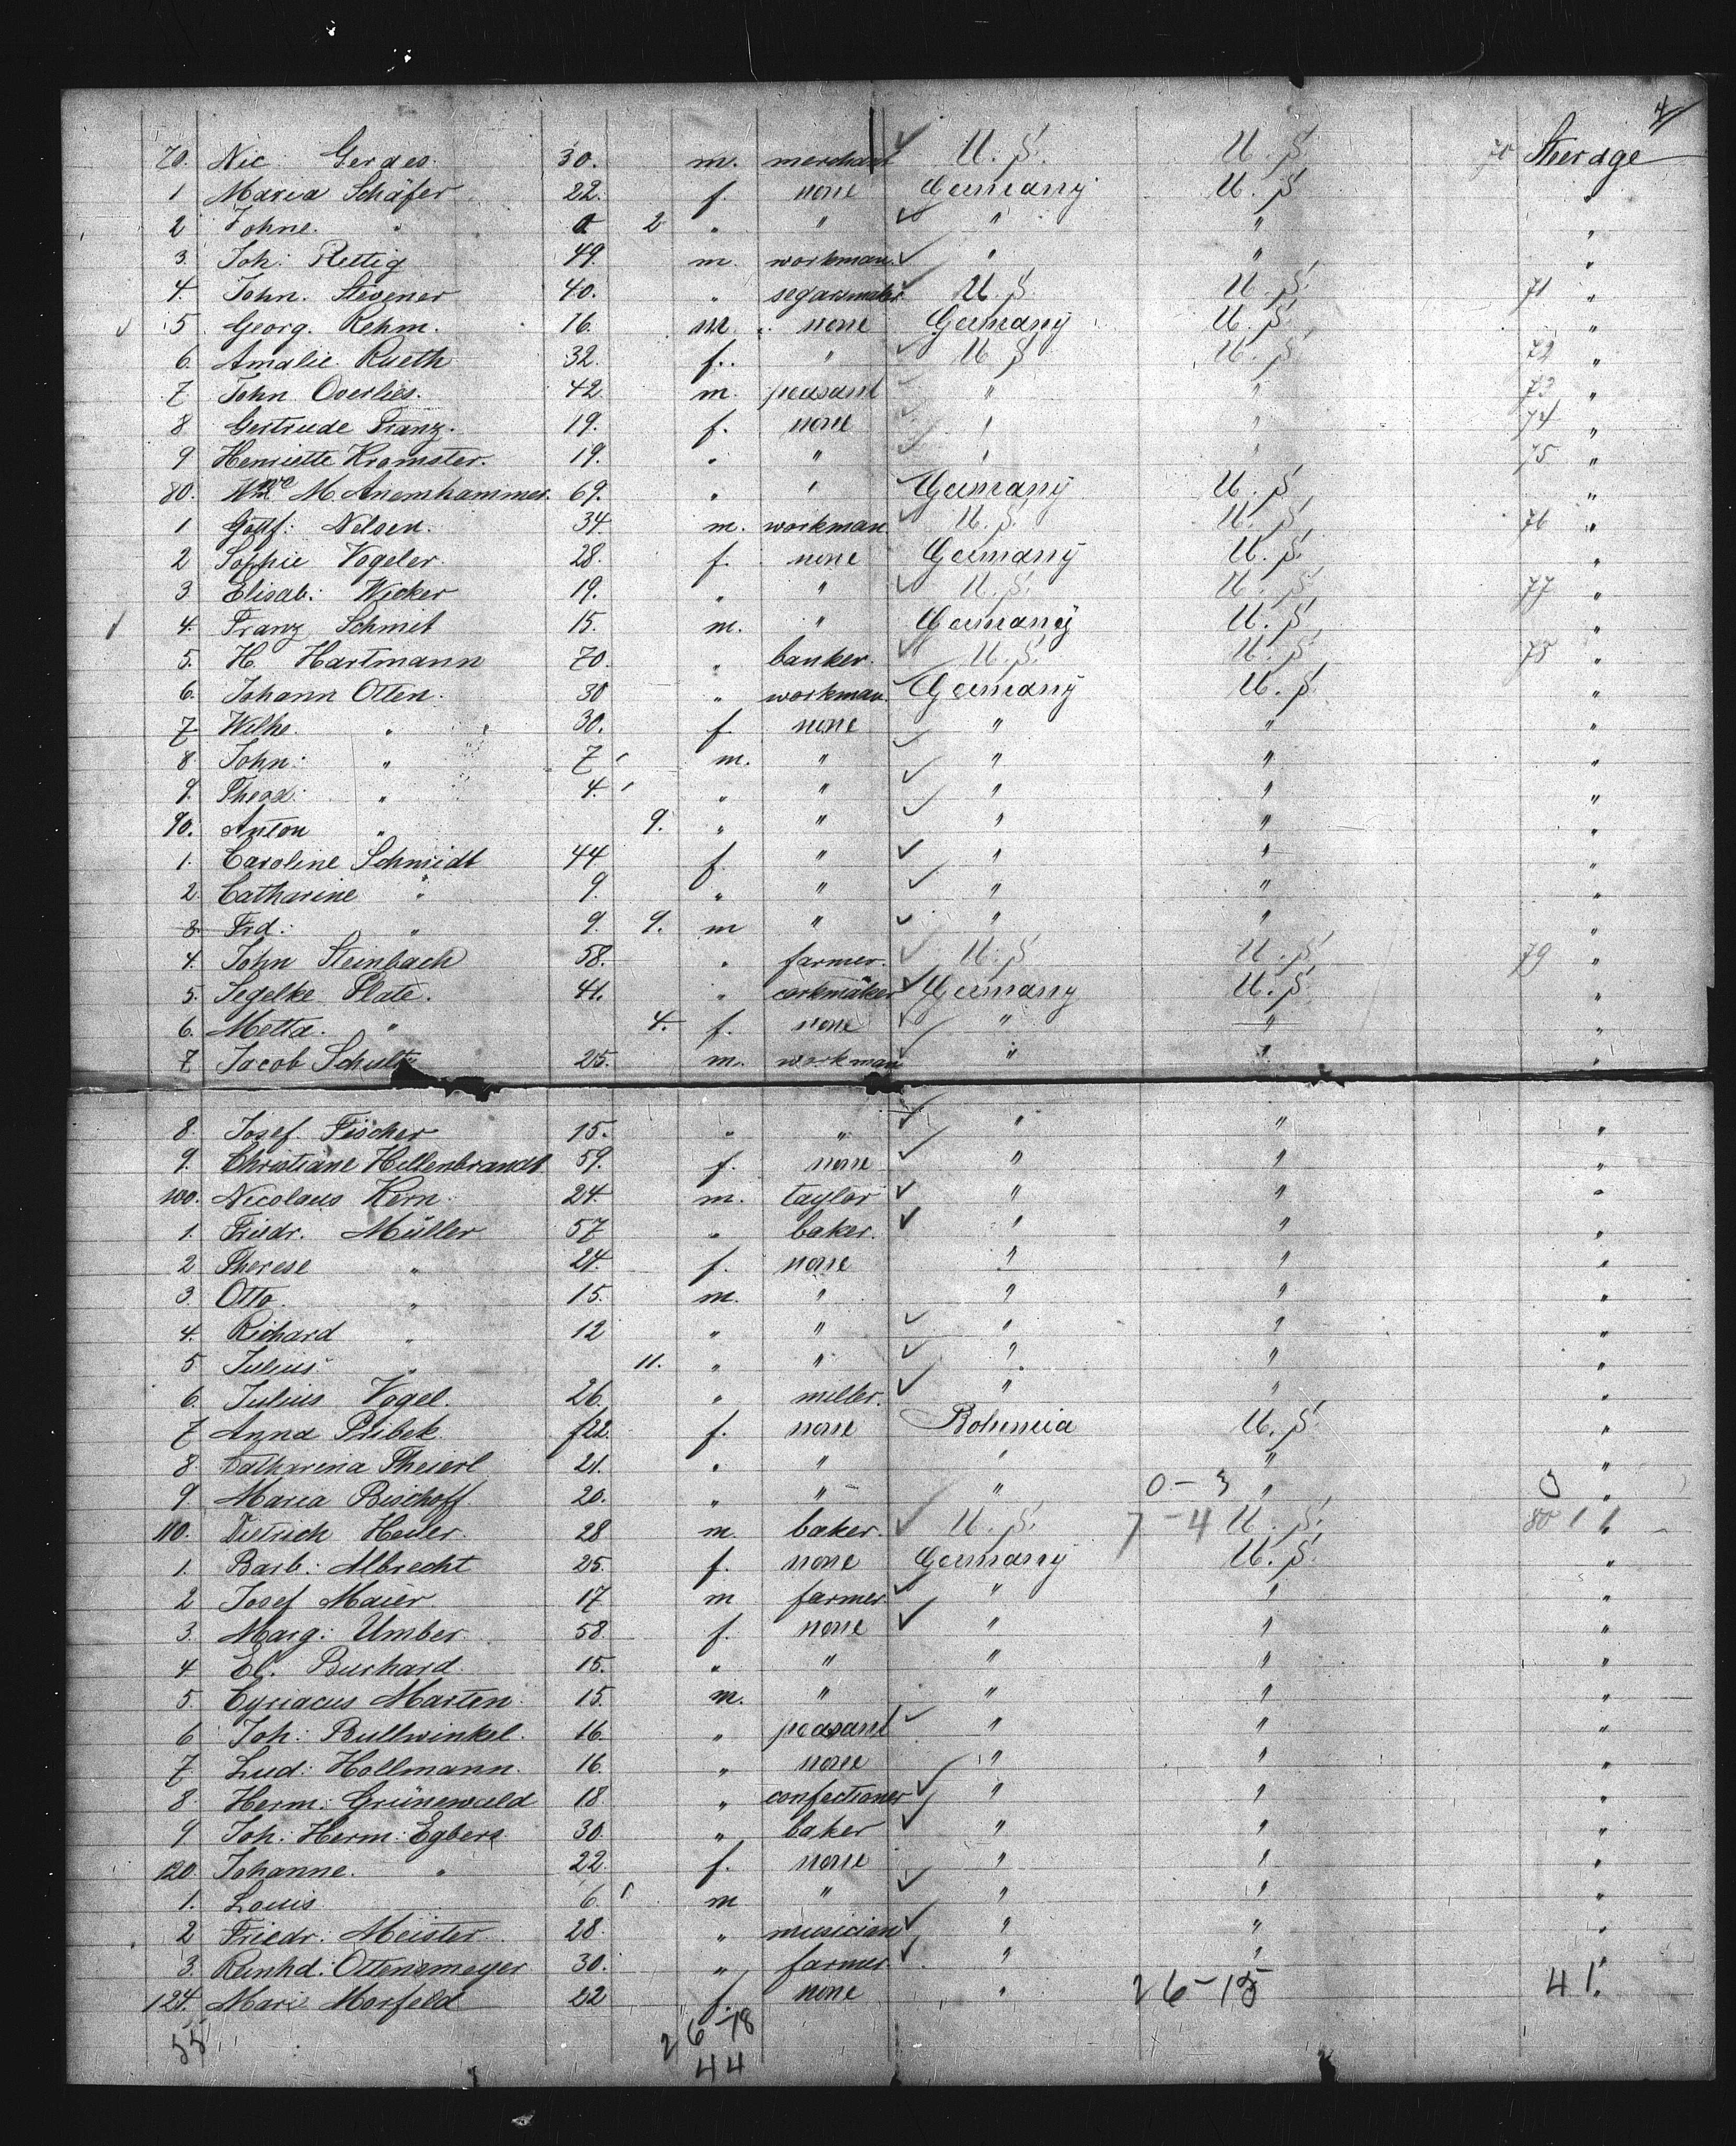 4
70. Nic. Gerdes. 30. m. merchant U. S. U. S. 70 Steerage
1 Maria Schäfer 22. f. none Germany U. S. "
2 Johne. " 2 " " " " "
3. Joh: Rettig 49. m. workman. " " "
4. John. 40. " segarsmaker U. S. U. S. 71 "
5 Georg. Rehm. 16. m. none Germany U. S. "
6. Amalie Rueth 32. f. " U. S. U. S. 72 "
7 John Overlies. 42. m. peasant " " 73 "
8 Gertrude Franz. 19. f. none " " 74 "
9 Henriette Kromster. 19. " " " " 75 "
80. M. Anemhammer. 69. " " Germany U. S. "
1 Gottf: Nelsen. 34. m. workman. U. S. U. S. 76 "
2 Sophie Vogeler. 28. f. none Germany U. S. "
3 Elisab: Wicker 19. " " U. S. U. S. 77 "
4. Franz Schmit 15. m. " Germany U. S. "
5. H. Hartmann 70. " banker. U. S. U. S. 78 "
6. Johann Otten. 30 " workman. Germany U. S. "
7 Wilhe. " 30. f. none " " "
8 John: " 7 m. " " " "
9. Theod: " 4. " " " " "
90. Anton " 9. " " " " "
1. Caroline Schmidt 44 f. " " " "
2. Catharine " 9. " " " " "
3. Frd.: " 9. 9. m " " " "
4. John Steinbach 58. " farmer. U. S. U. S. 79 "
5. Segelke Plate. 41. " corkmaker Germany U. S. "
6. Metta. " 4. f. none " " "
7 Jacob Schultz 25. m. workman " " "
8. Josef Fischer 15. " " " " "
9. Christiane Hillenbrandt 59. f. none " " "
100. Nicolaus Kern. 24. m. taylor " " "
1. Friedr. Müller 57 " baker. " " "
2 Therese " 24. f. none " " "
3. Otto. " 15. m. " " " "
4. Richard " 12 " " " " "
5 Julius " 11. " " " " "
6. Julius Vogel. 26. " miller. " " "
7 Anna Pribek f22. f. none Bohemia U. S. "
8. Catharina Theierl 21. " " " " "
9 Maria Bischoff 20. " " " 0-3 " 3 "
110. Dietrich Heiler. 28 m. baker. U. S. 7-4 U. S. 80 / / "
1. Barb: Albrecht 25. f. none Germany U. S. "
2 Josef Maier. 17 m farmer " " "
3. Marg: Umber. 58. f. none " " "
4 El. Burhard. 15. " " " " "
5. Cyriacus Marten. 15. m. " " " "
6 Joh: Bullwinkel. 16. " peasant " " "
7. Lud: Hollmann. 16. " none " " "
8. Herm: Grünewald 18. " confectioner " " "
9 Joh: Herm: Egbers. 30. " baker " " "
120. Johanne. " 22. f. none " " "
1. Louis 6 m " " " "
2 Friedr. Meister 28. " musician " " "
3. Reinhd: Ottensmeyer 30. " farmer " " "
124. Mari Morfeld 22 f. none " 26-15 41.
55 26-18
44